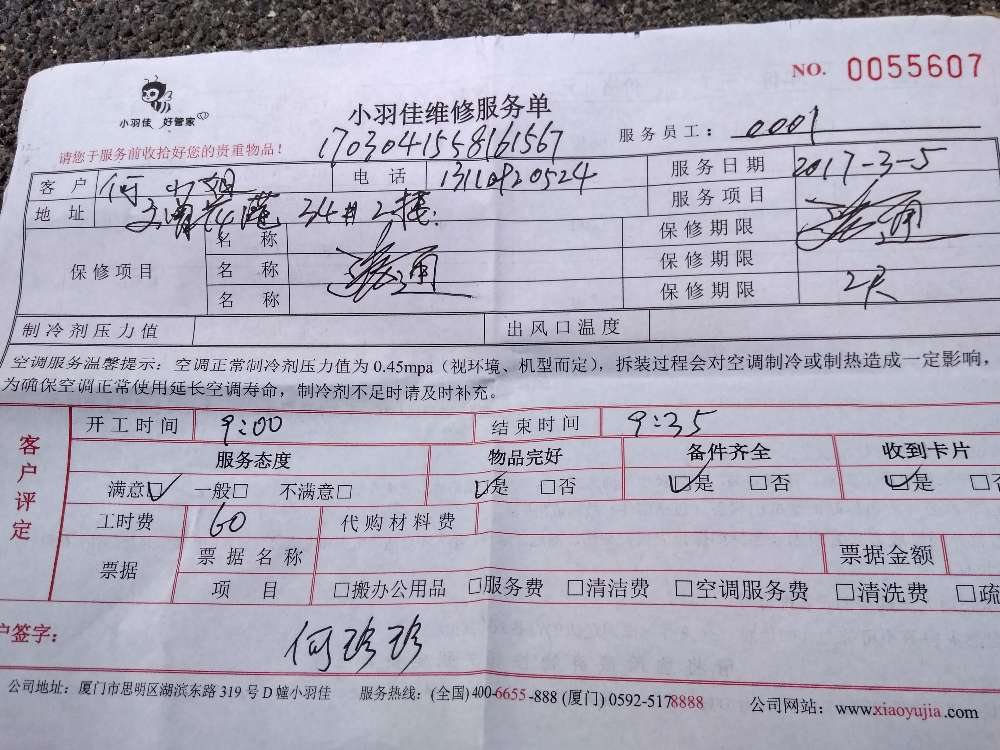 NO. 0055607
小羽佳 好管家
小羽佳维修服务单
请您于服务前收拾好您的贵重物品！
1703041558161567
服务员工： 0001
客户 何小姐 电话 13110920524 服务日期 2017-3-5
地址 34#2楼 服务项目
保修项目
名称 保修期限
名称 保修期限
名称 保修期限 2天
制冷剂压力值 出风口温度
空调服务温馨提示：空调正常制冷剂压力值为 0.45mpa（视环境、机型而定），拆装过程会对空调制冷或制热造成一定影响，
为确保空调正常使用延长空调寿命，制冷剂不足时请及时补充。
客户评定
开工时间 9:00 结束时间 9:35
服务态度 物品完好 备件齐全 收到卡片
满意□ 一般□ 不满意□ □是 □否 □是 □否 □是 □否
工时费 60 代购材料费
票据 票据名称 票据金额
项目 □搬办公用品 □服务费 □清洁费 □空调服务费 □清洗费 □疏
户签字： 何珍珍
公司地址：厦门市思明区湖滨东路 319 号 D 幢小羽佳 服务热线：(全国)400-6655-888 (厦门) 0592-5178888 公司网站：www.xiaoyujia.com